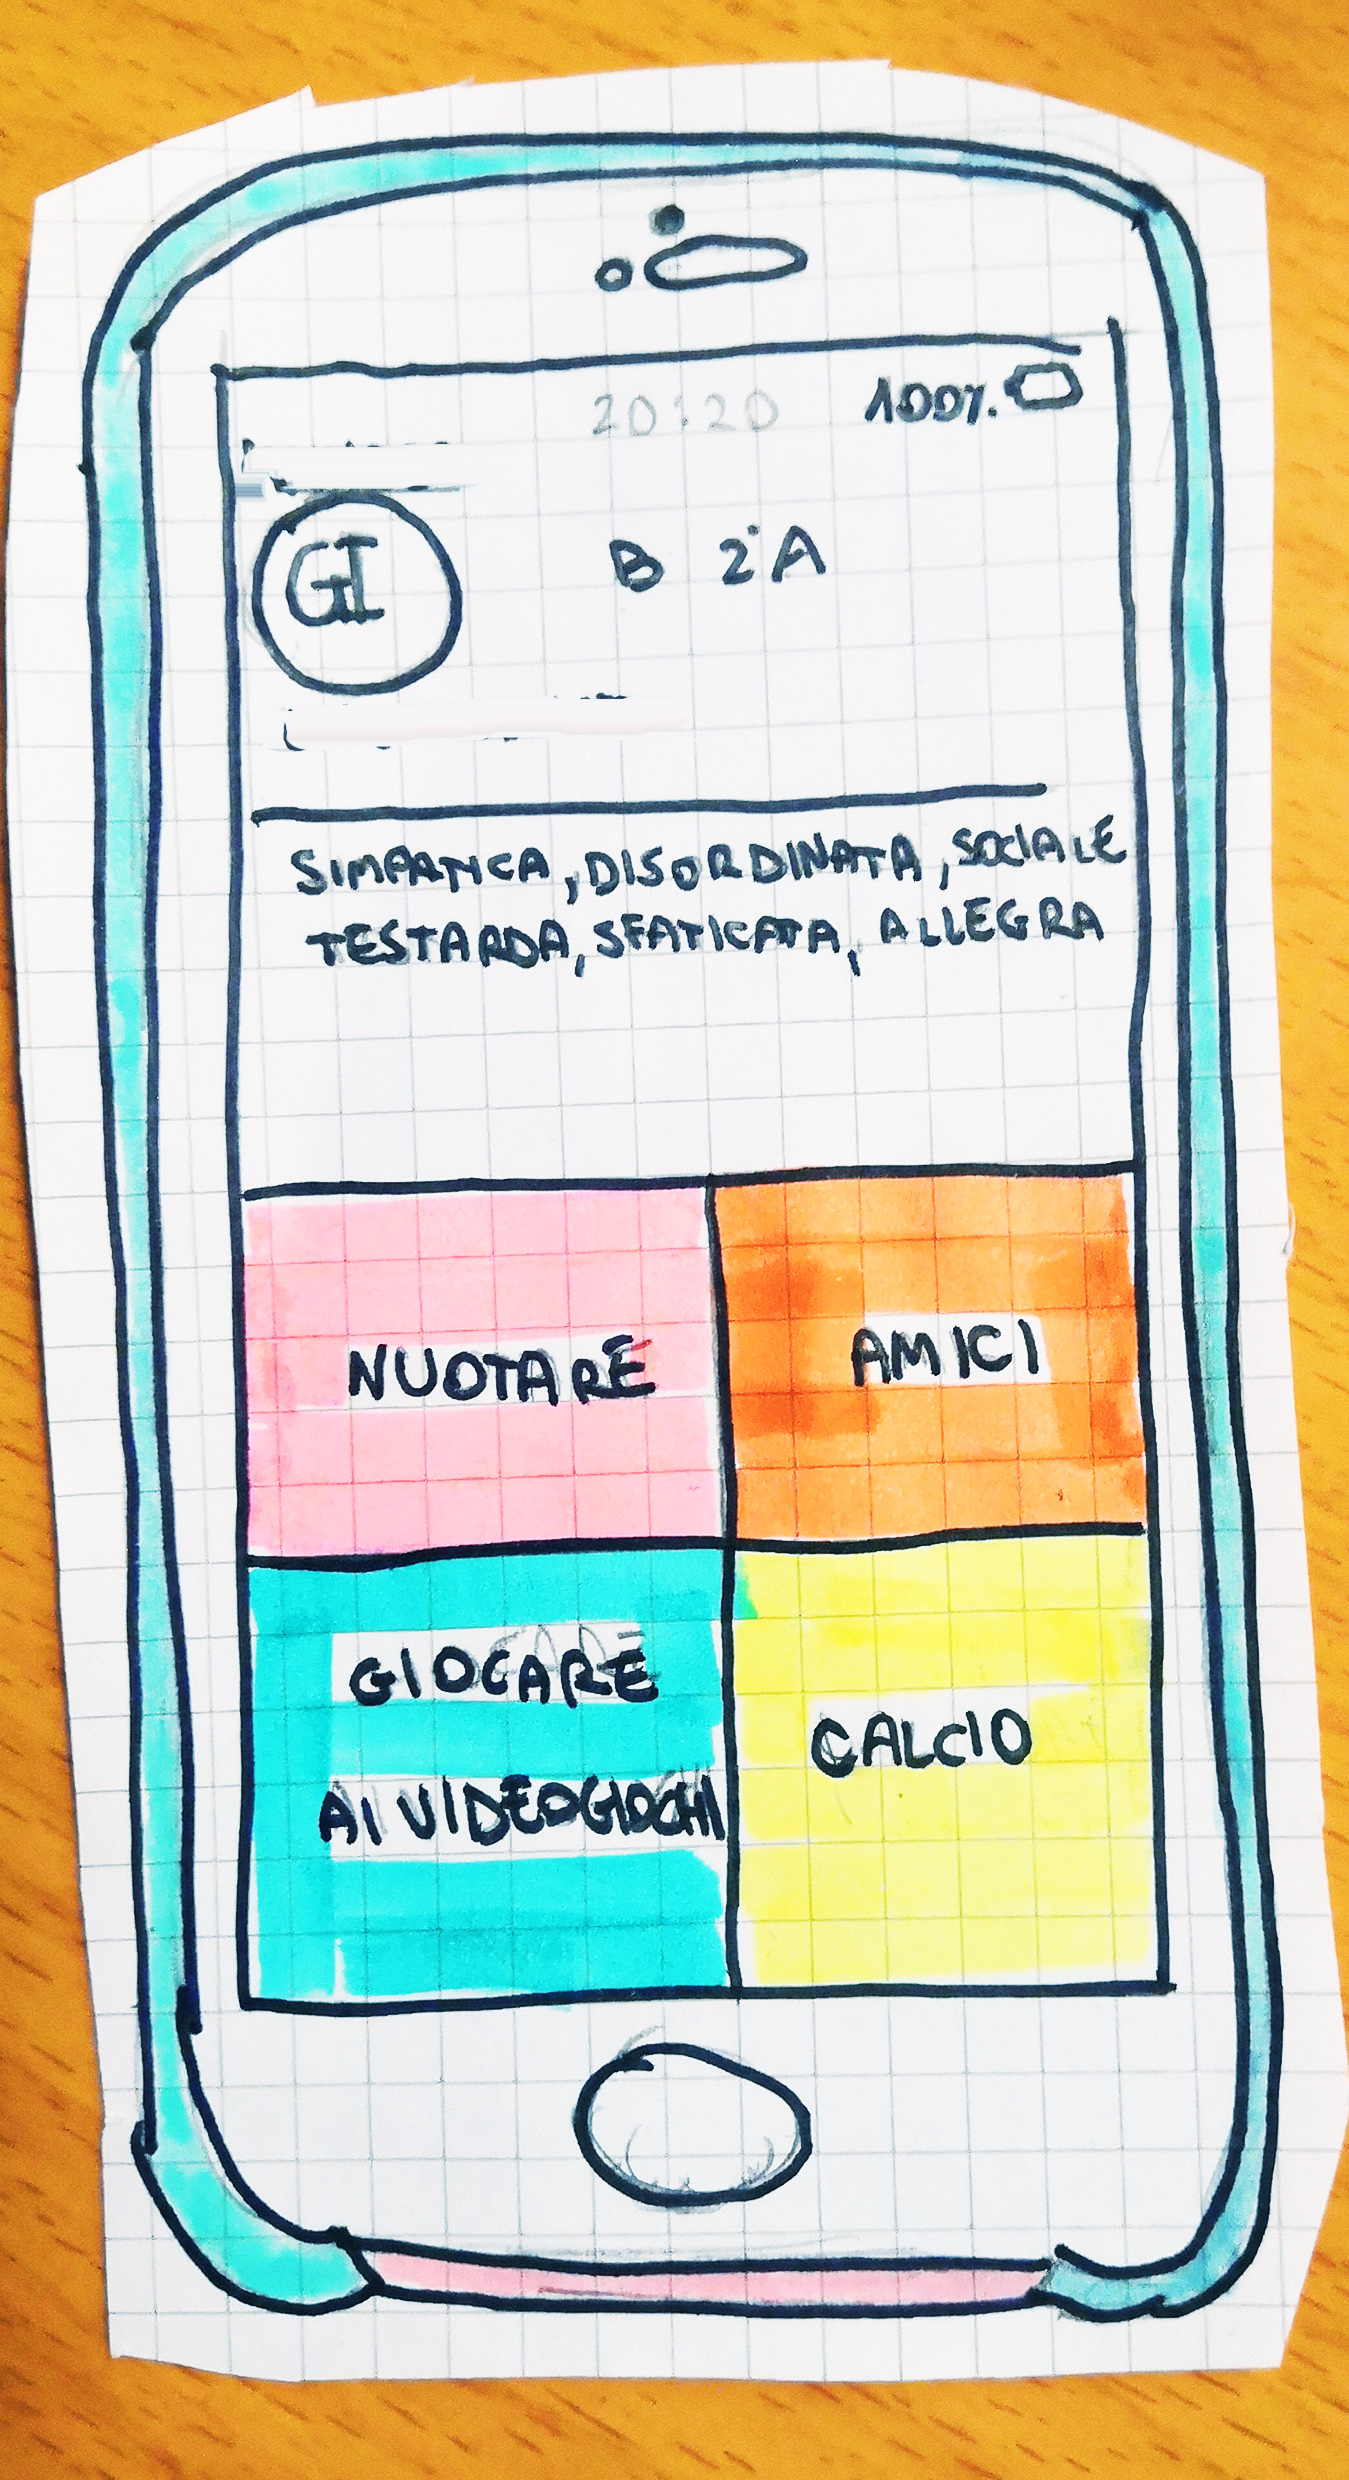 20:20 100%
GI
B 2°A
SIMPATICA, DISORDINATA, SOCIALE
TESTARDA, SFATICATA, ALLEGRA
NUOTARE
AMICI
GIOCARE
AI VIDEOGIOCHI
CALCIO